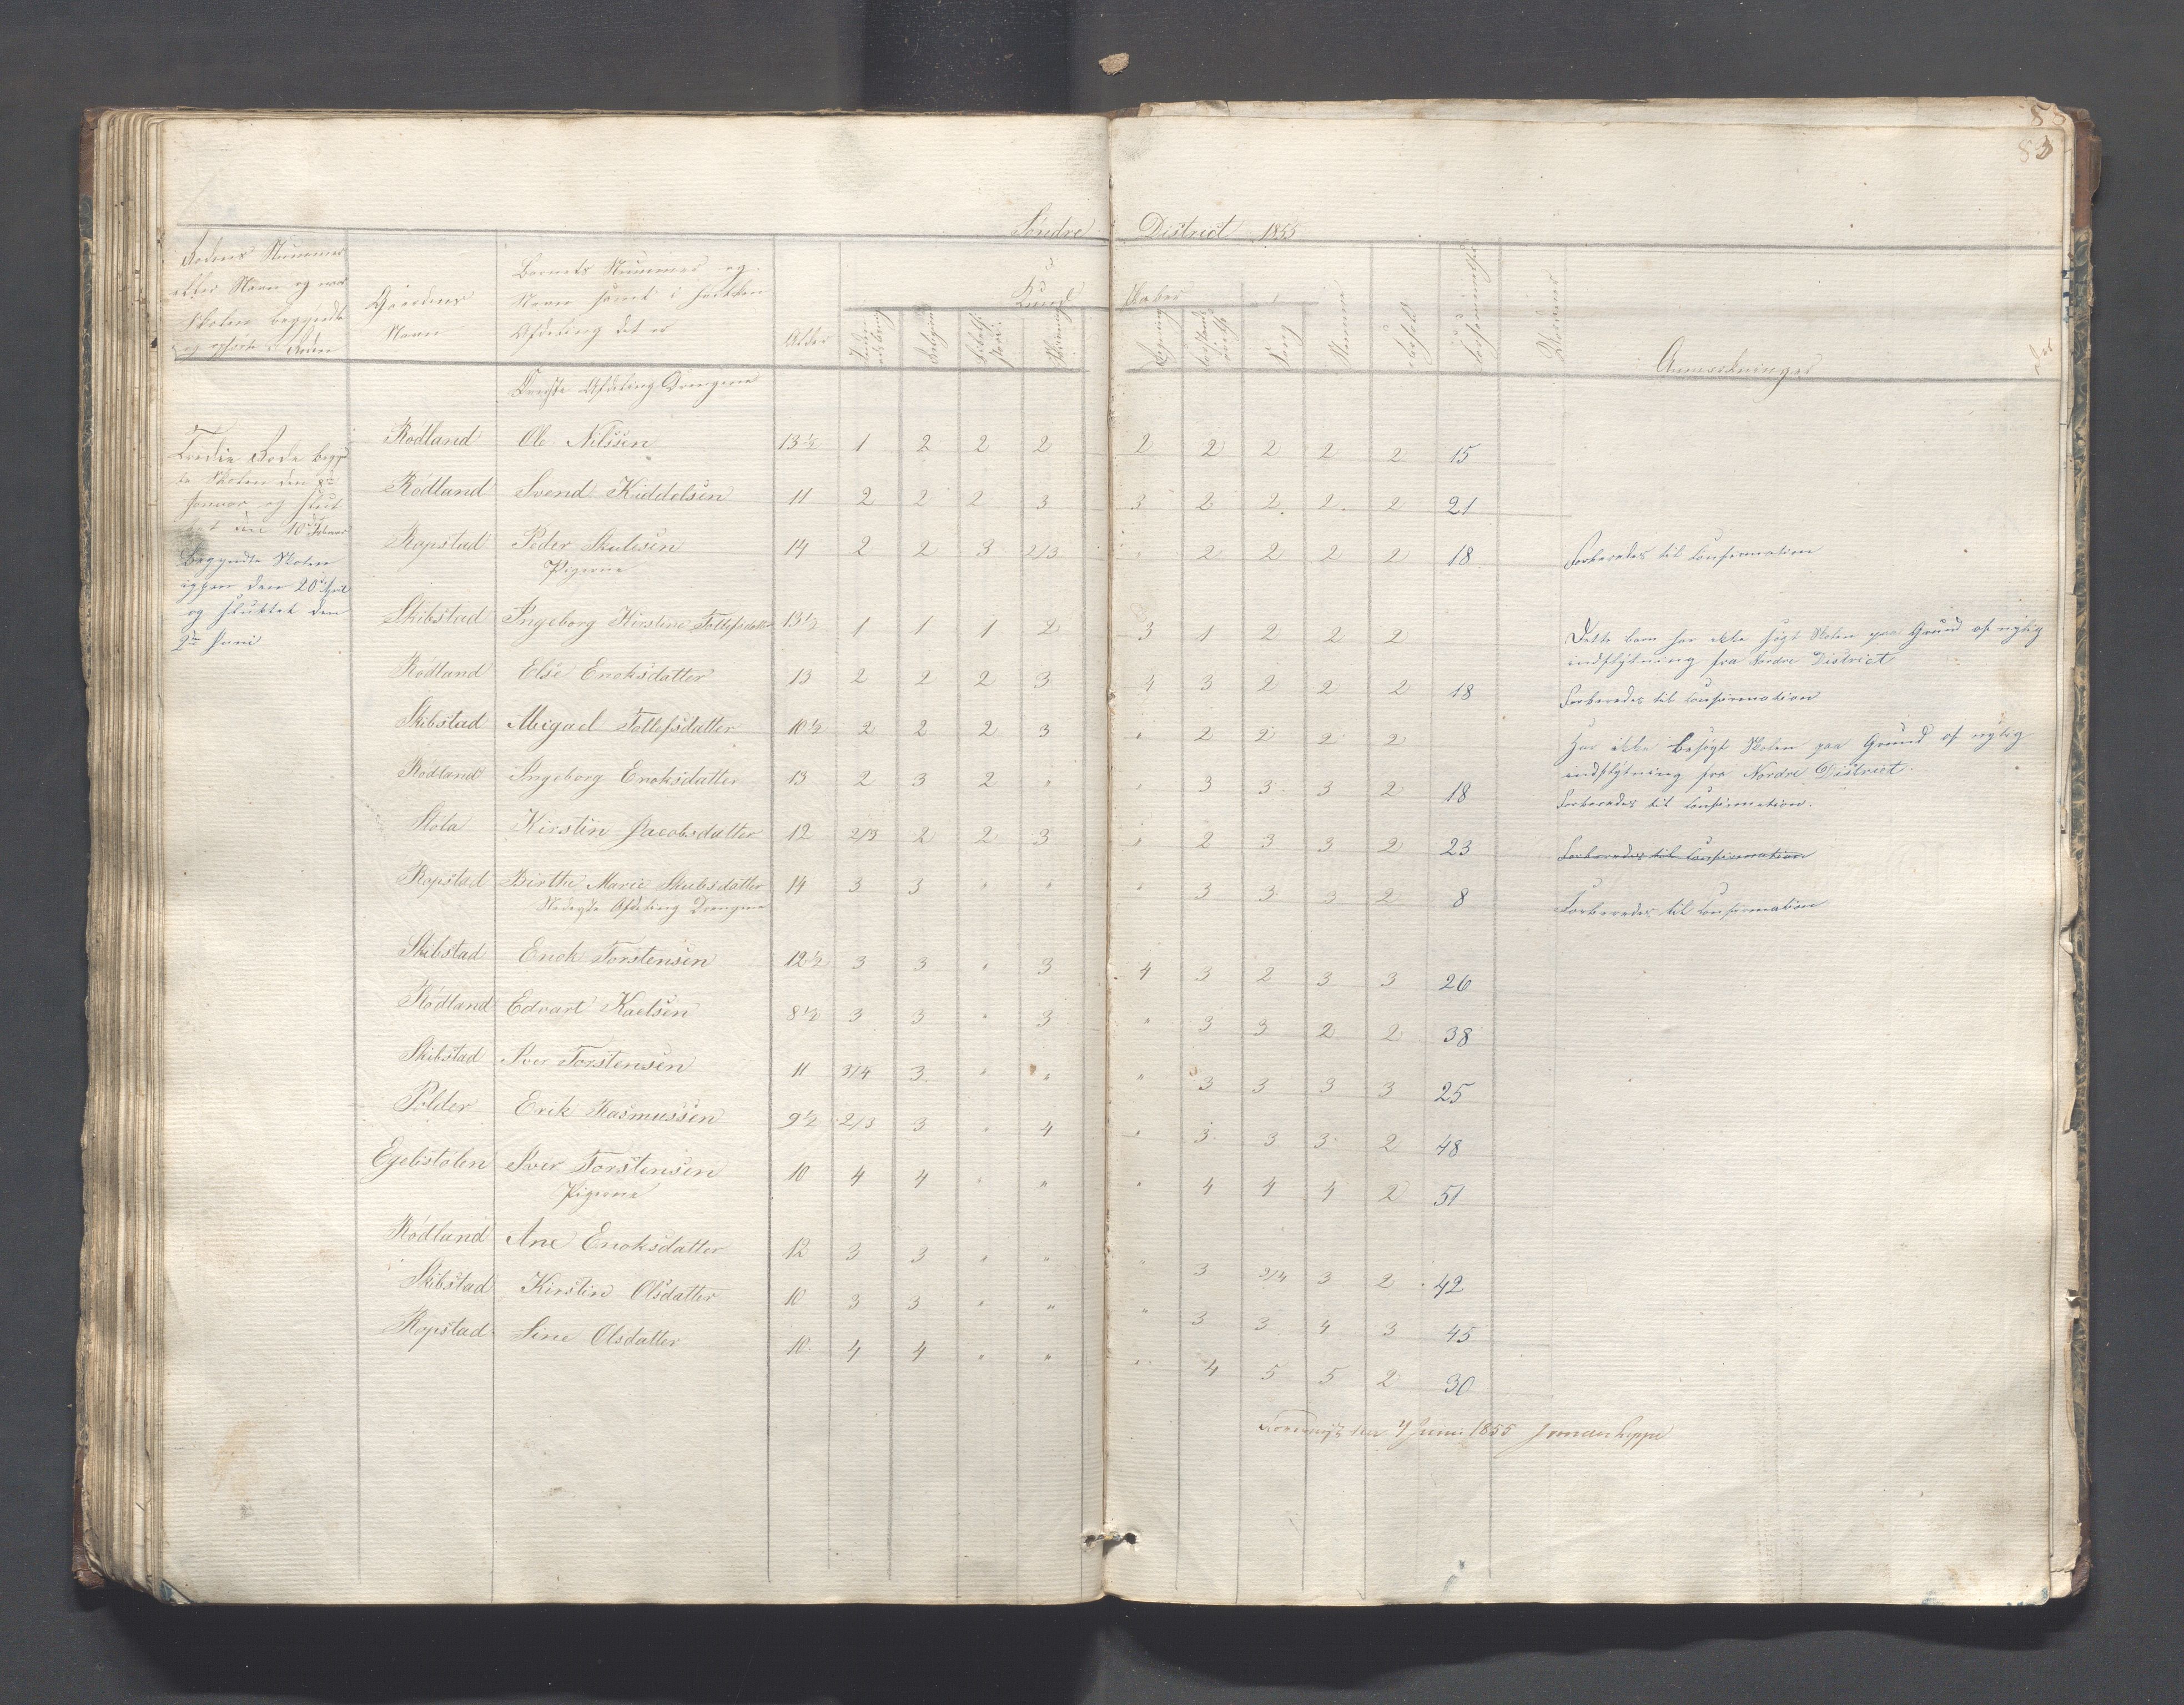 83
Søndre District 1855
Rodens Nummer
eller Navn og naar
Skolen begyndte
og ophørte i Roden
Gaardens
Navn
Barnets Nummer og
Navn samt i hvilken
Afdeling det er
Alder
Kundskaber
Religion
Skrivning
Regning
Sang
Forsømmelser
Anmærkninger
Øverste Afdeling Drengene
Tredie Rode begyndte Skolen den 8de
Januar og sluttet den 10de Februar
Begyndte Skolen
igjen den 20de April
og sluttet den
2den Juni
Rødland Ole Nilssen 13½ 1 2 2 2 2 2 2 2 2 15
Rødland Svend Kiddelsen 11 2 2 2 3 3 2 2 2 2 21
Ropstad Peder Skulesen 14 2 2 3 2/3 " 2 2 2 2 18 Forberedes til Confirmation
Pigerne
Skibstad Ingeborg Kirstine Tollefsdatter 13½ 1 1 1 2 3 1 2 2 2 Dette barn har ikke søgt Skolen paa Grund af nylig
indflytning fra Nordre District
Rødland Else Enoksdatter 13 2 2 2 3 4 3 2 2 2 18 Forberedes til Confirmation
Skibstad Abigael Tollefsdatter 10½ 2 2 2 3 " 2 2 2 2 Har ikke besøgt Skolen paa Grund af nylig
indflytning fra Nordre District.
Rødland Ingeborg Enoksdatter 13 2 3 2 " " 3 3 3 2 18 Forberedes til Confirmation.
Støla Kirstin Jacobsdatter 12 2/3 2 2 3 " 2 3 3 2 23 Forberedes til Confirmation
Ropstad Birthe Marie Skulesdatter 14 3 3 " " " 3 3 3 2 8 Forberedes til Confirmation
Nederste Afdeling Drengene
Skibstad Enok Torstensen 12½ 3 3 " 3 4 3 2 3 3 26
Rødland Edvart Kaelsen 8½ 3 3 " 3 " 3 3 2 2 38
Skibstad Iver Torstensen 11 3/4 3 " " " 3 3 3 3 25
Polder Erik Rasmussen 9½ 2/3 3 " 4 " 3 3 3 2 48
Egelistølen Iver Torstensen 10 4 4 " " " 4 4 4 2 51
Pigerne
Rødland Ane Enoksdatter 12 3 3 " " " 3 3/4 3 2 42
Skibstad Kirstin Olsdatter 10 3 3 " " " 3 3 4 3 45
Ropstad Sine Olsdatter 10 4 4 " " " 4 5 5 2 30
Foreviist den 4 Juni 1855